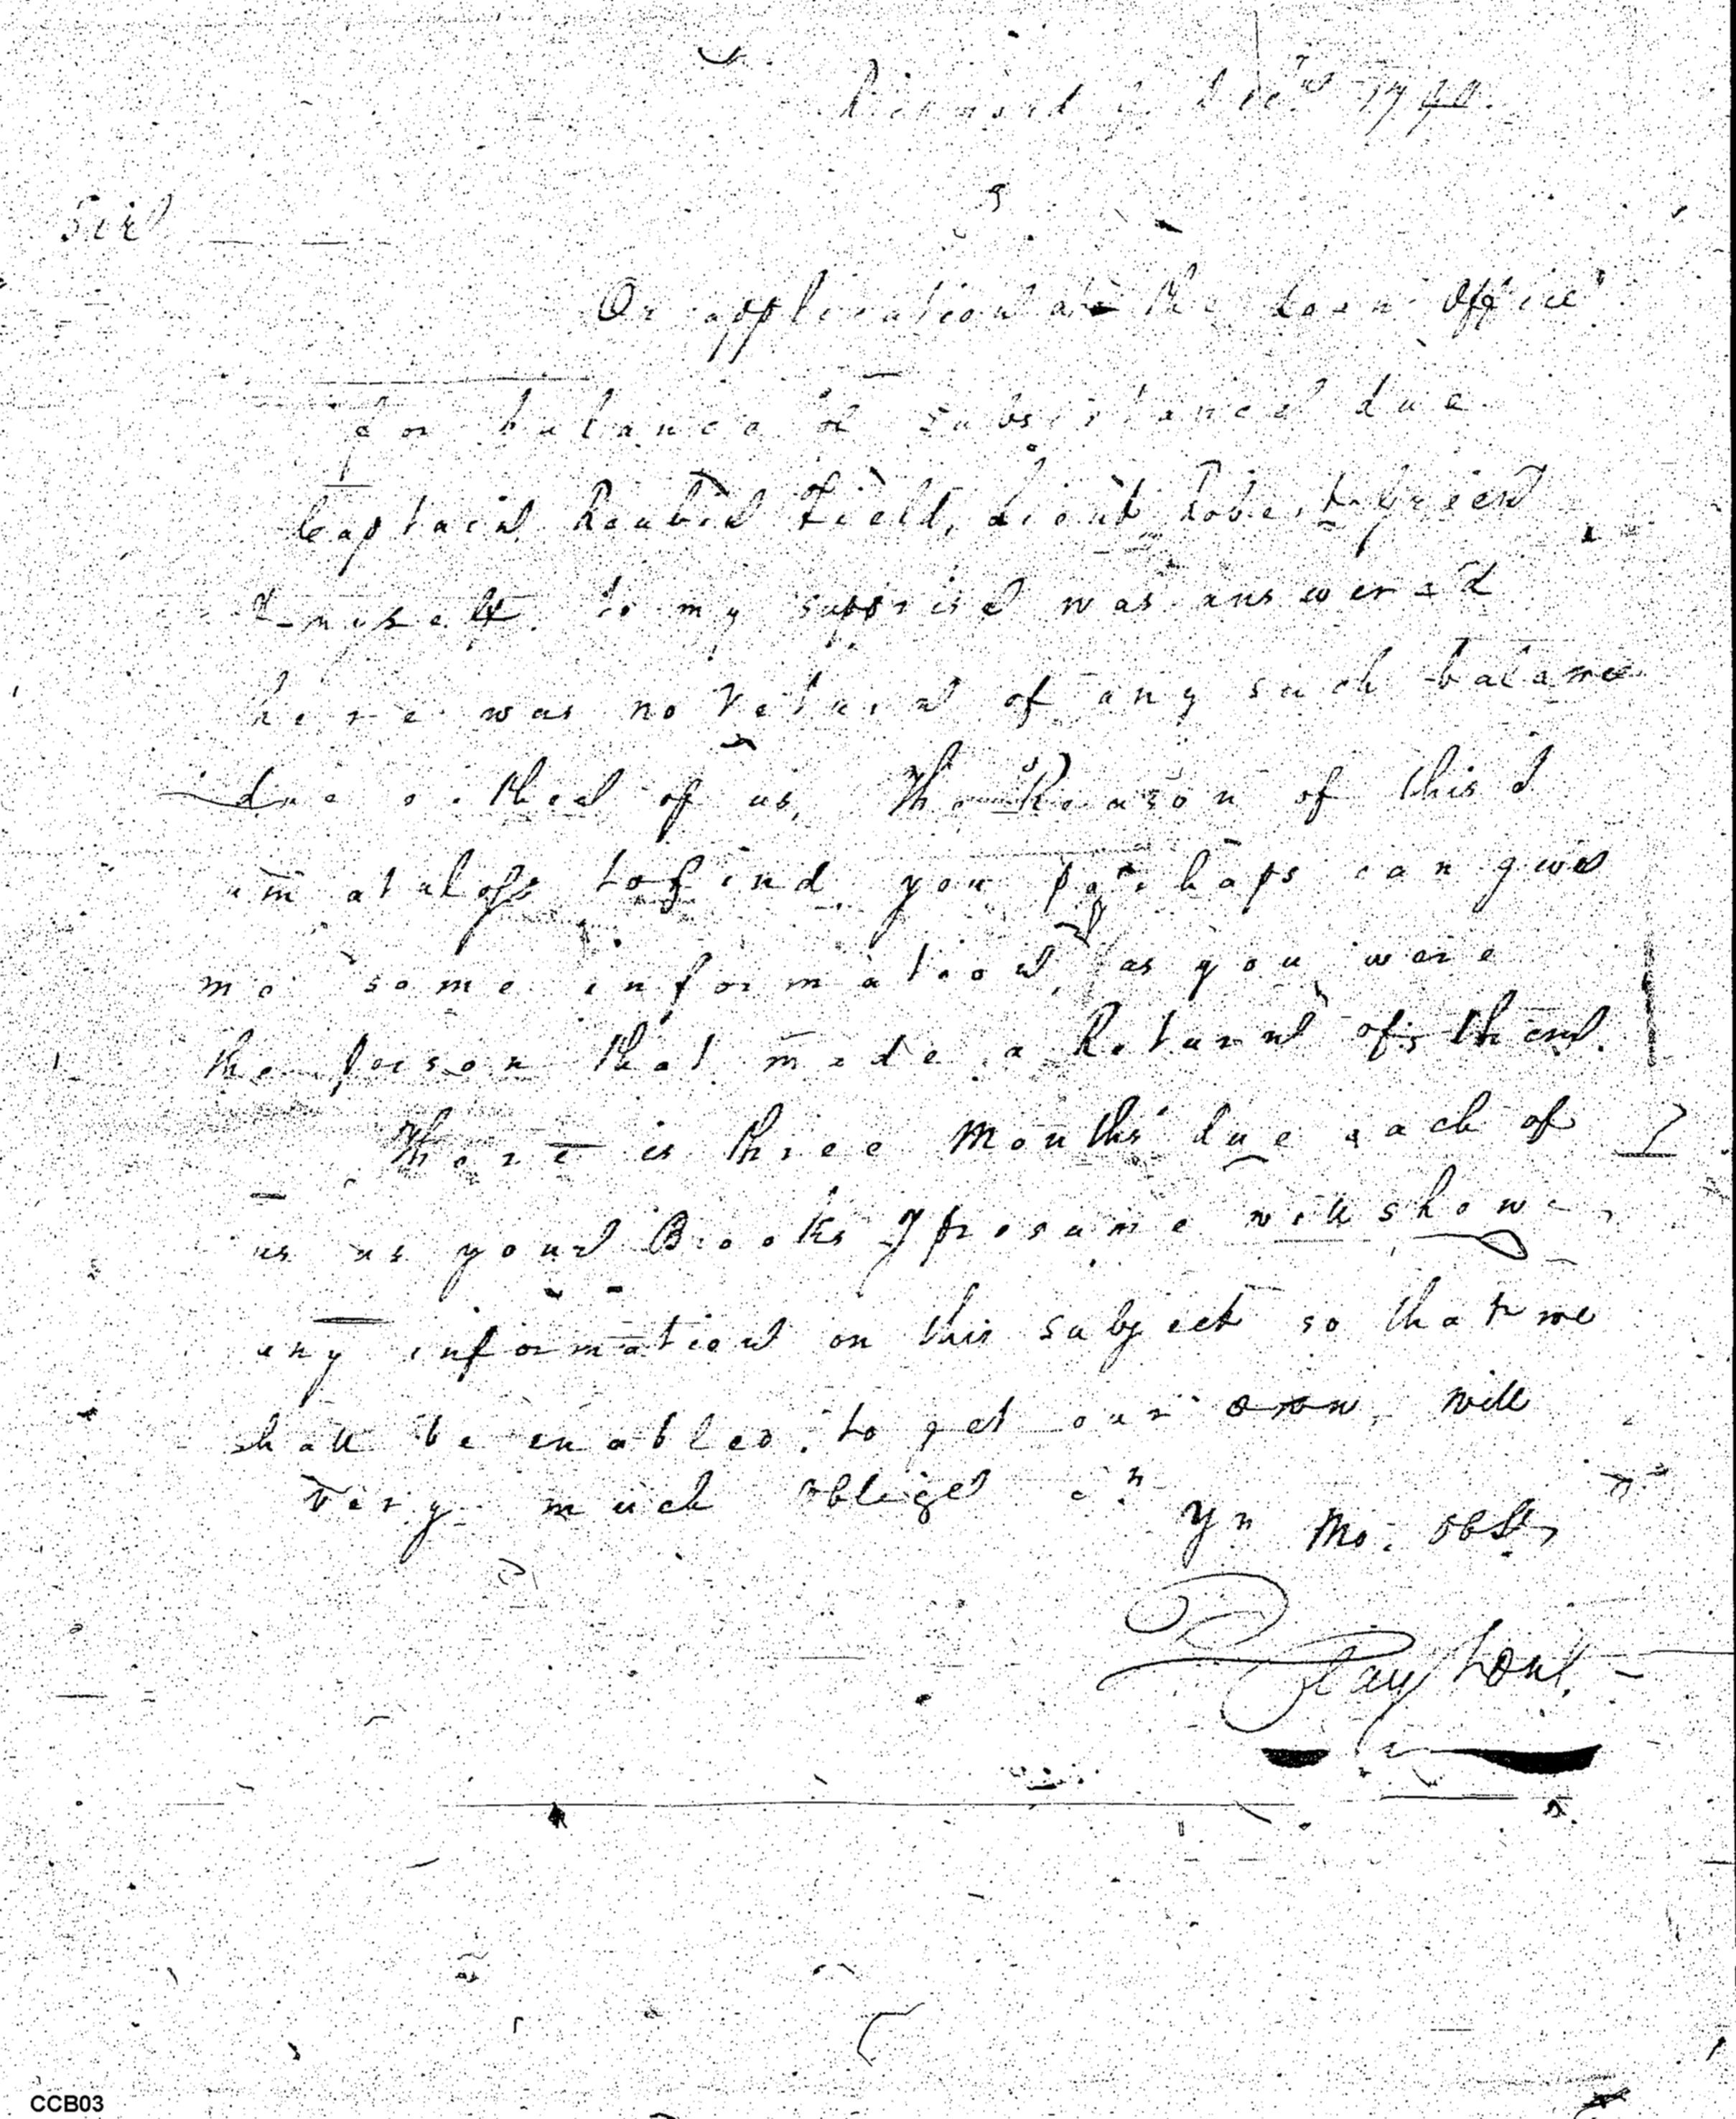 Richmond Dec.r 1790.
Sir
On application at the Loan Office
for balance of subsistance due
Captain Reubin Field, Lieut Robert Green
& myself. to my supprise was answered
here was no Return of any such balance
due either of us, The Reason of this I
am at a loss to find, you perhaps can give
me some information, as you were
the person that made a Return of them.
There is three Months due each of
us as your Books I presume will show,
any information on this subject so that we
shall be enabled to get our own, will
very much oblige
Yr Mo: obSt,
CCB03